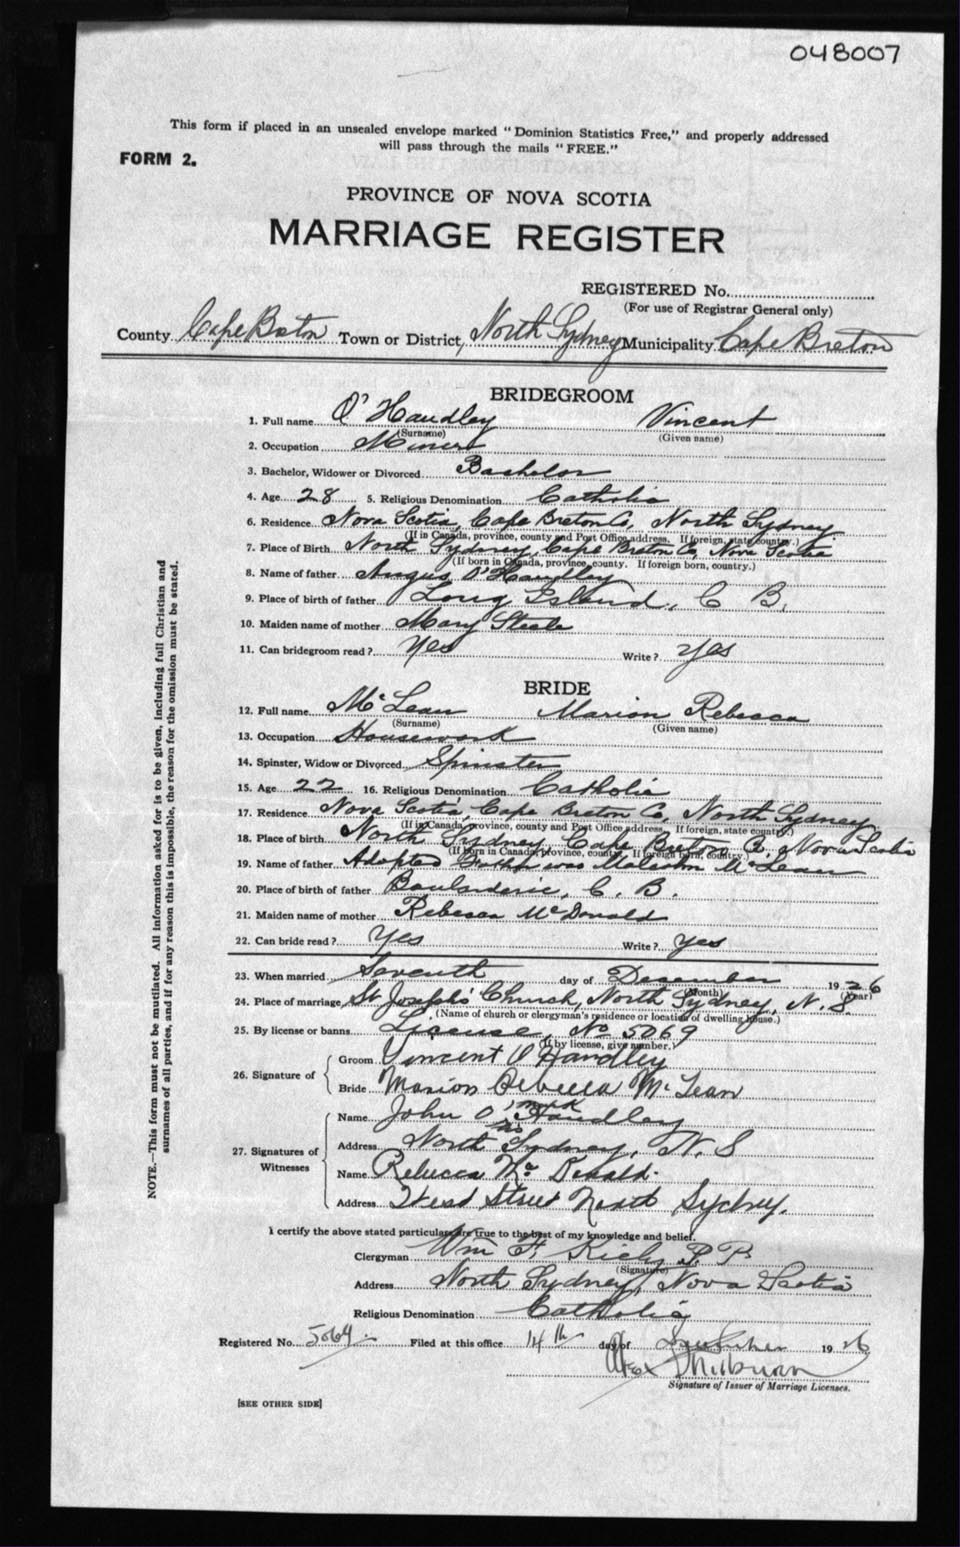 048007
This form if placed in an unsealed envelope marked "Dominion Statistics Free," and properly addressed
will pass through the mails "FREE."
FORM 2.
PROVINCE OF NOVA SCOTIA
MARRIAGE REGISTER
REGISTERED No.
(For use of Registrar General only)
County Cape Breton Town or District, North Sydney Municipality Cape Breton
BRIDEGROOM
1. Full name O'Handley Vincent
(Surname) (Given name)
2. Occupation Miner
3. Bachelor, Widower or Divorced Bachelor
4. Age 28 5. Religious Denomination Catholic
6. Residence Nova Scotia, Cape Breton Co, North Sydney
(If in Canada, province, county and Post Office address. If foreign, state country.)
7. Place of Birth North Sydney, Cape Breton Co, Nova Scotia
(If born in Canada, province, county. If foreign born, country.)
8. Name of father Angus O'Handley
9. Place of birth of father Long Island, C B.
10. Maiden name of mother Mary Steele
11. Can bridegroom read? Yes Write? Yes
BRIDE
12. Full name McLean Marion Rebecca
(Surname) (Given name)
13. Occupation Housework
14. Spinster, Widow or Divorced Spinster
15. Age 22 16. Religious Denomination Catholic
17. Residence Nova Scotia, Cape Breton Co, North Sydney
(If in Canada, province, county and Post Office address. If foreign, state country.)
18. Place of birth North Sydney, Cape Breton Co, Nova Scotia
(If born in Canada, province, county. If foreign born, country.)
19. Name of father Adopted Father was Malcolm McLean
20. Place of birth of father Boularderie, C. B.
21. Maiden name of mother Rebecca McDonald
22. Can bride read? Yes Write? Yes
23. When married Seventh day of December 1926
(Month) (Year)
24. Place of marriage St Joseph's Church, North Sydney, N. S.
(Name of church or clergyman's residence or location of dwelling house.)
25. By license or banns License, No 5069
(If by license, give number.)
26. Signature of
Groom Vincent O Handley
Bride Marion Rebecca McLean
27. Signatures of Witnesses
Name John O'Handley
his mark
Address North Sydney, N. S
Name Rebecca Mc Donald
Address West Street North Sydney.
I certify the above stated particulars are true to the best of my knowledge and belief.
Clergyman Wm F. Kiely P. P.
(Signature)
Address North Sydney, Nova Scotia
Religious Denomination Catholic
Registered No. 5069 Filed at this office 14th day of December 1926
Signature of Issuer of Marriage Licenses.
[SEE OTHER SIDE]
NOTE.—This form must not be mutilated. All information asked for is to be given, including full Christian and
surnames of all parties, and if for any reason this is impossible, the reason for the omission must be stated.